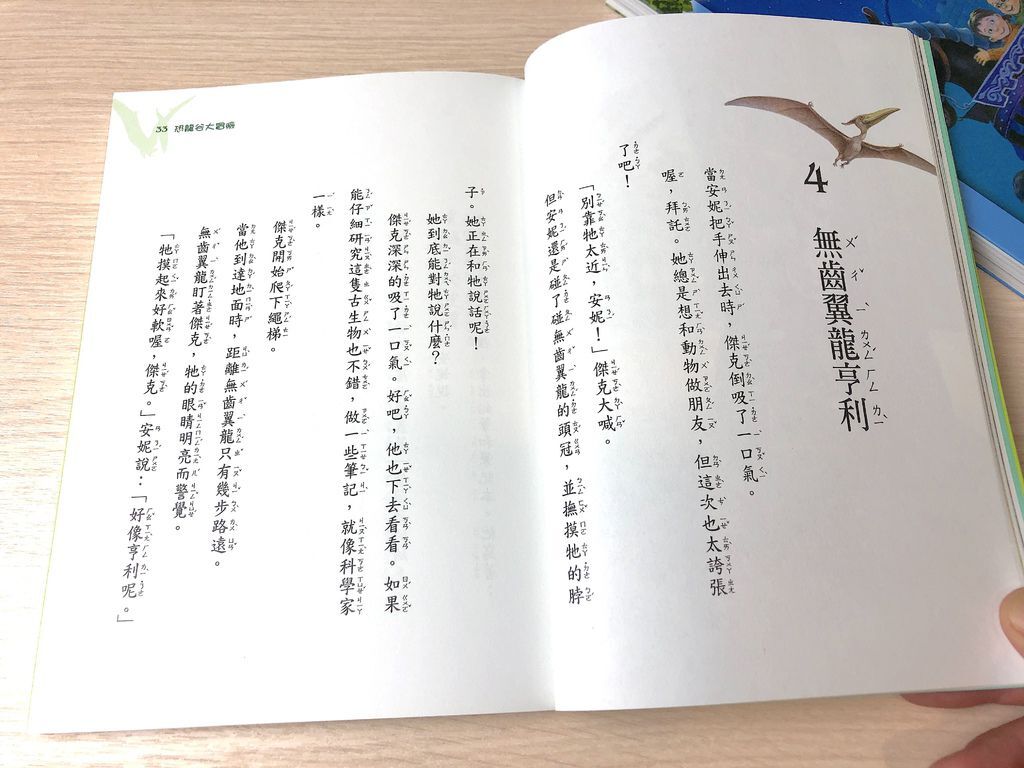 4 無齒翼龍亨利
當安妮把手伸出去時，傑克倒吸了一口氣。
喔，拜託。她總是想和動物做朋友，但這次也太誇張
了吧！
「別靠牠太近，安妮！」傑克大喊。
但安妮還是碰了碰無齒翼龍的頭冠，並撫摸牠的脖
子。她正在和牠說話呢！
她到底能對牠說什麼？
傑克深深的吸了一口氣。好吧，他也下去看看。如果
能仔細研究這隻古生物也不錯，做一些筆記，就像科學家
一樣。
傑克開始爬下繩梯。
當他到達地面時，距離無齒翼龍只有幾步路遠。
無齒翼龍盯著傑克，牠的眼睛明亮而警覺。
「牠摸起來好軟喔，傑克。」安妮說：「好像亨利呢。」
33 恐龍谷大冒險